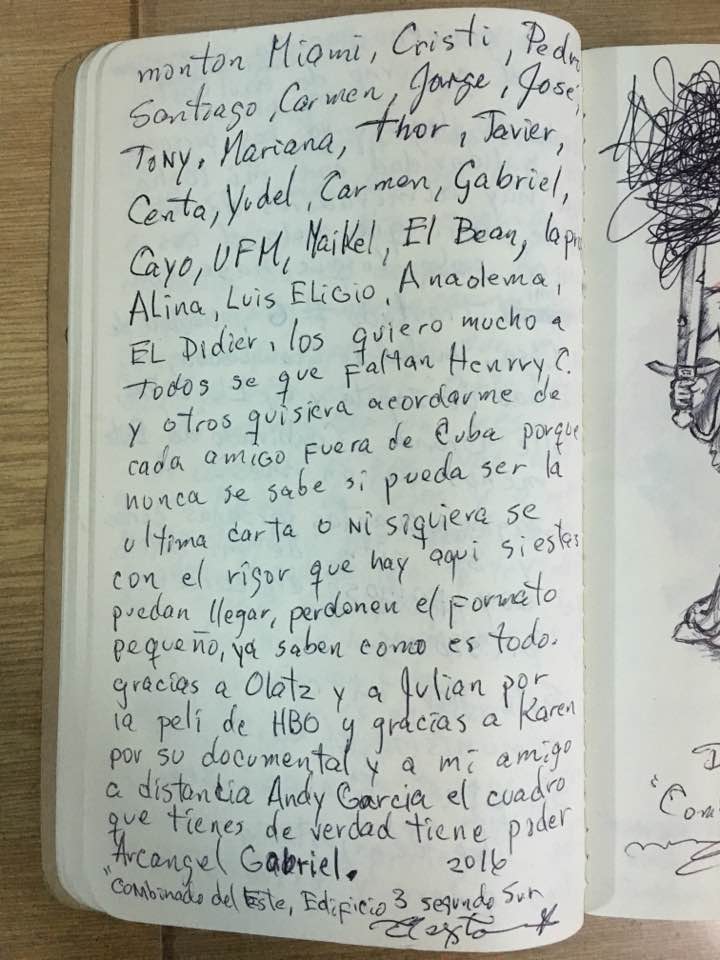 monton Miami, Cristi, Pedr
Santiago, Carmen, Jorge, José,
TONY, Mariana, Thor, Javier,
Centa, Yudel, Carmen, Gabriel,
Cayo, UFM, Maikel, El Bean, lapr
Alina, Luis Eligio, Anaolema,
EL Didier, los quiero mucho a
Todos se que Faltan Henrry C.
y otros quisiera acordarme de
cada amigo fuera de Cuba porque
nunca se sabe si pueda ser la
ultima carta o Ni siquiera se
con el rigor que hay aqui si estas
puedan llegar, perdonen el Formato
pequeño, ya saben como es todo.
gracias a Olatz y a Julian por
la peli de HBO y gracias a Karen
por su documental y a mi amigo
a distancia Andy Garcia el cuadro
que tienes de verdad tiene poder
"Arcangel Gabriel. 2016
"Combinado del Este, Edificio 3 segundo Sur
"Com